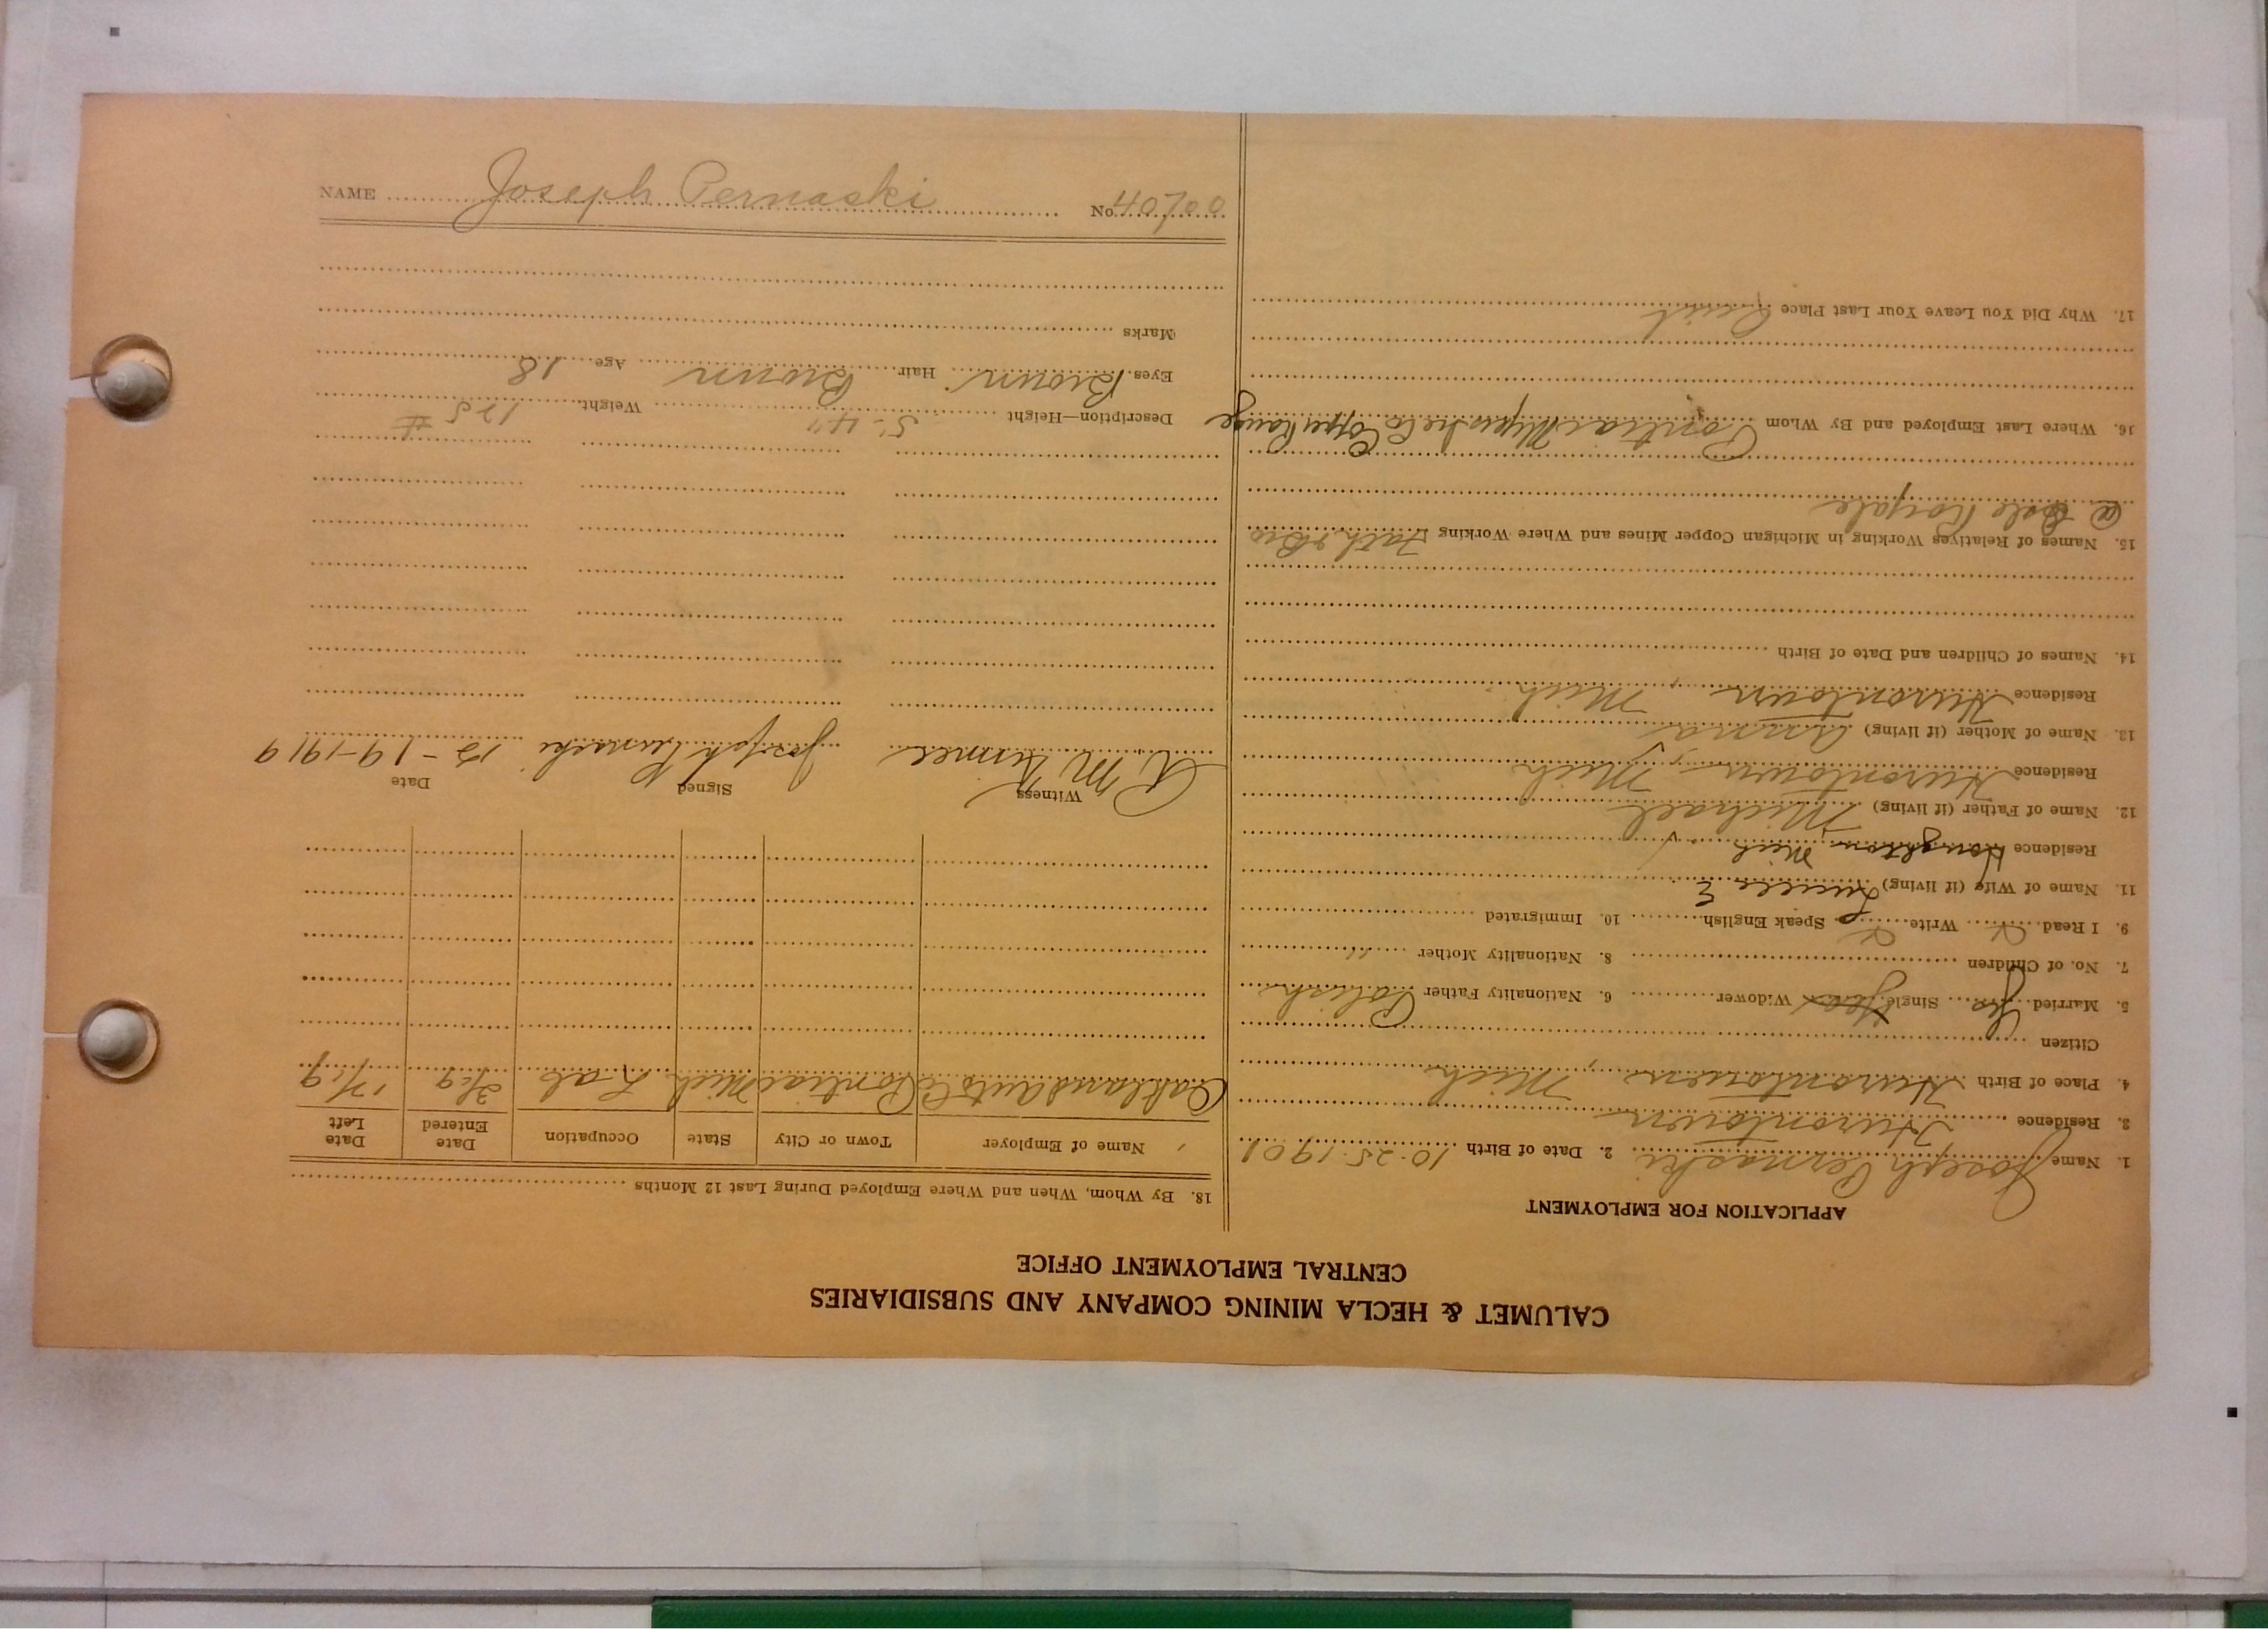 CALUMET & HECLA MINING COMPANY AND SUBSIDIARIES
CENTRAL EMPLOYMENT OFFICE
APPLICATION FOR EMPLOYMENT
1. Name Joseph Pernaski 2. Date of Birth 10-25-1901
3. Residence Hurontown
4. Place of Birth Hurontown, Mich
Citizen
5. Married Yes Single Yes Widower 6. Nationality Father Polish
7. No. of Children 8. Nationality Mother "
9. I Read Write Speak English 10. Immigrated
11. Name of Wife (if living) E
Residence Houghton Mich
12. Name of Father (if living) Michael
Residence Hurontown, Mich
13. Name of Mother (if living) Anna
Residence Hurontown, Mich
14. Names of Children and Date of Birth
15. Names of Relatives Working in Michigan Copper Mines and Where Working Fath & Bro
@ Isle Royale
16. Where Last Employed and By Whom Pontiac Copper Range
17. Why Did You Leave Your Last Place Quit
18. By Whom, When and Where Employed During Last 12 Months
Name of Employer Town or City State Occupation Date Entered Date Left
Oakland Auto Co Pontiac Mich Lab
Witness Signed Date
Joseph Pernaski 12-19-1919
Description—Height 5'-4" Weight 125 #
Eyes Brown Hair Brown Age 18
Marks
NAME Joseph Pernaski No. 40700